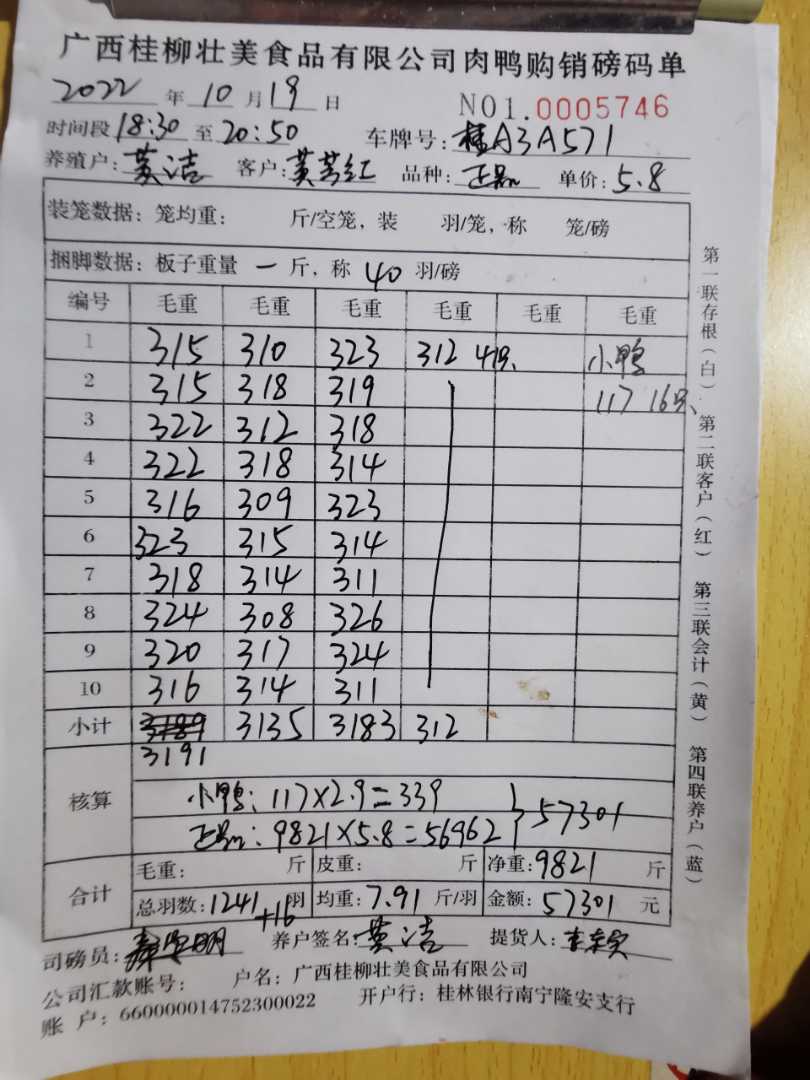 广西桂柳壮美食品有限公司肉鸭购销磅码单
2022年10月19日 NO1.0005746
时间段18:30至20:50 车牌号:桂A3A571
养殖户:黄洁 客户:黄芳红 品种:正品 单价:5.8
装笼数据:笼均重: 斤/空笼,装 羽/笼,称 笼/磅
捆脚数据:板子重量 一 斤,称 40 羽/磅
编号 毛重 毛重 毛重 毛重 毛重 毛重
1 315 310 323 312 41只 小鸭
2 315 318 319 117 16只
3 322 312 318
4 322 318 314
5 316 309 323
6 323 315 314
7 318 314 311
8 324 308 326
9 320 317 324
10 316 314 311
小计 3189 3135 3183 312
3191
核算 小鸭:117×2.9=339
正品:9821×5.8=56962 } 57301
合计 毛重: 斤 皮重: 斤 净重:9821 斤
总羽数:1241羽 均重:7.91 斤/羽 金额:57301 元
+16
司磅员: 养户签名:黄洁 提货人:
公司汇款账号: 户名:广西桂柳壮美食品有限公司
账户:660000014752300022 开户行:桂林银行南宁隆安支行
第一联存根(白) 第二联客户(红) 第三联会计(黄) 第四联养户(蓝)